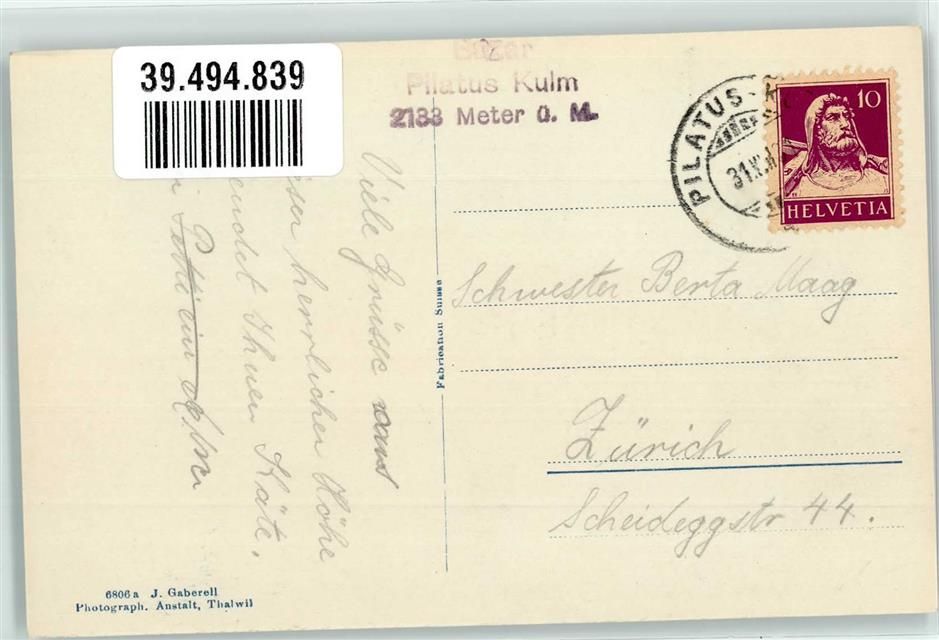 39.494.839
Bazar
Pilatus Kulm
2133 Meter ü. M.
PILATUS
31.
10
HELVETIA
Viele Grüsse
herrlicher Höhe
sendet Ihnen Käte.
Fabrication Suisse
Schwester Berta Maag
Zürich
Scheideggstr 44.
6806a J. Gaberell
Photograph. Anstalt, Thalwil